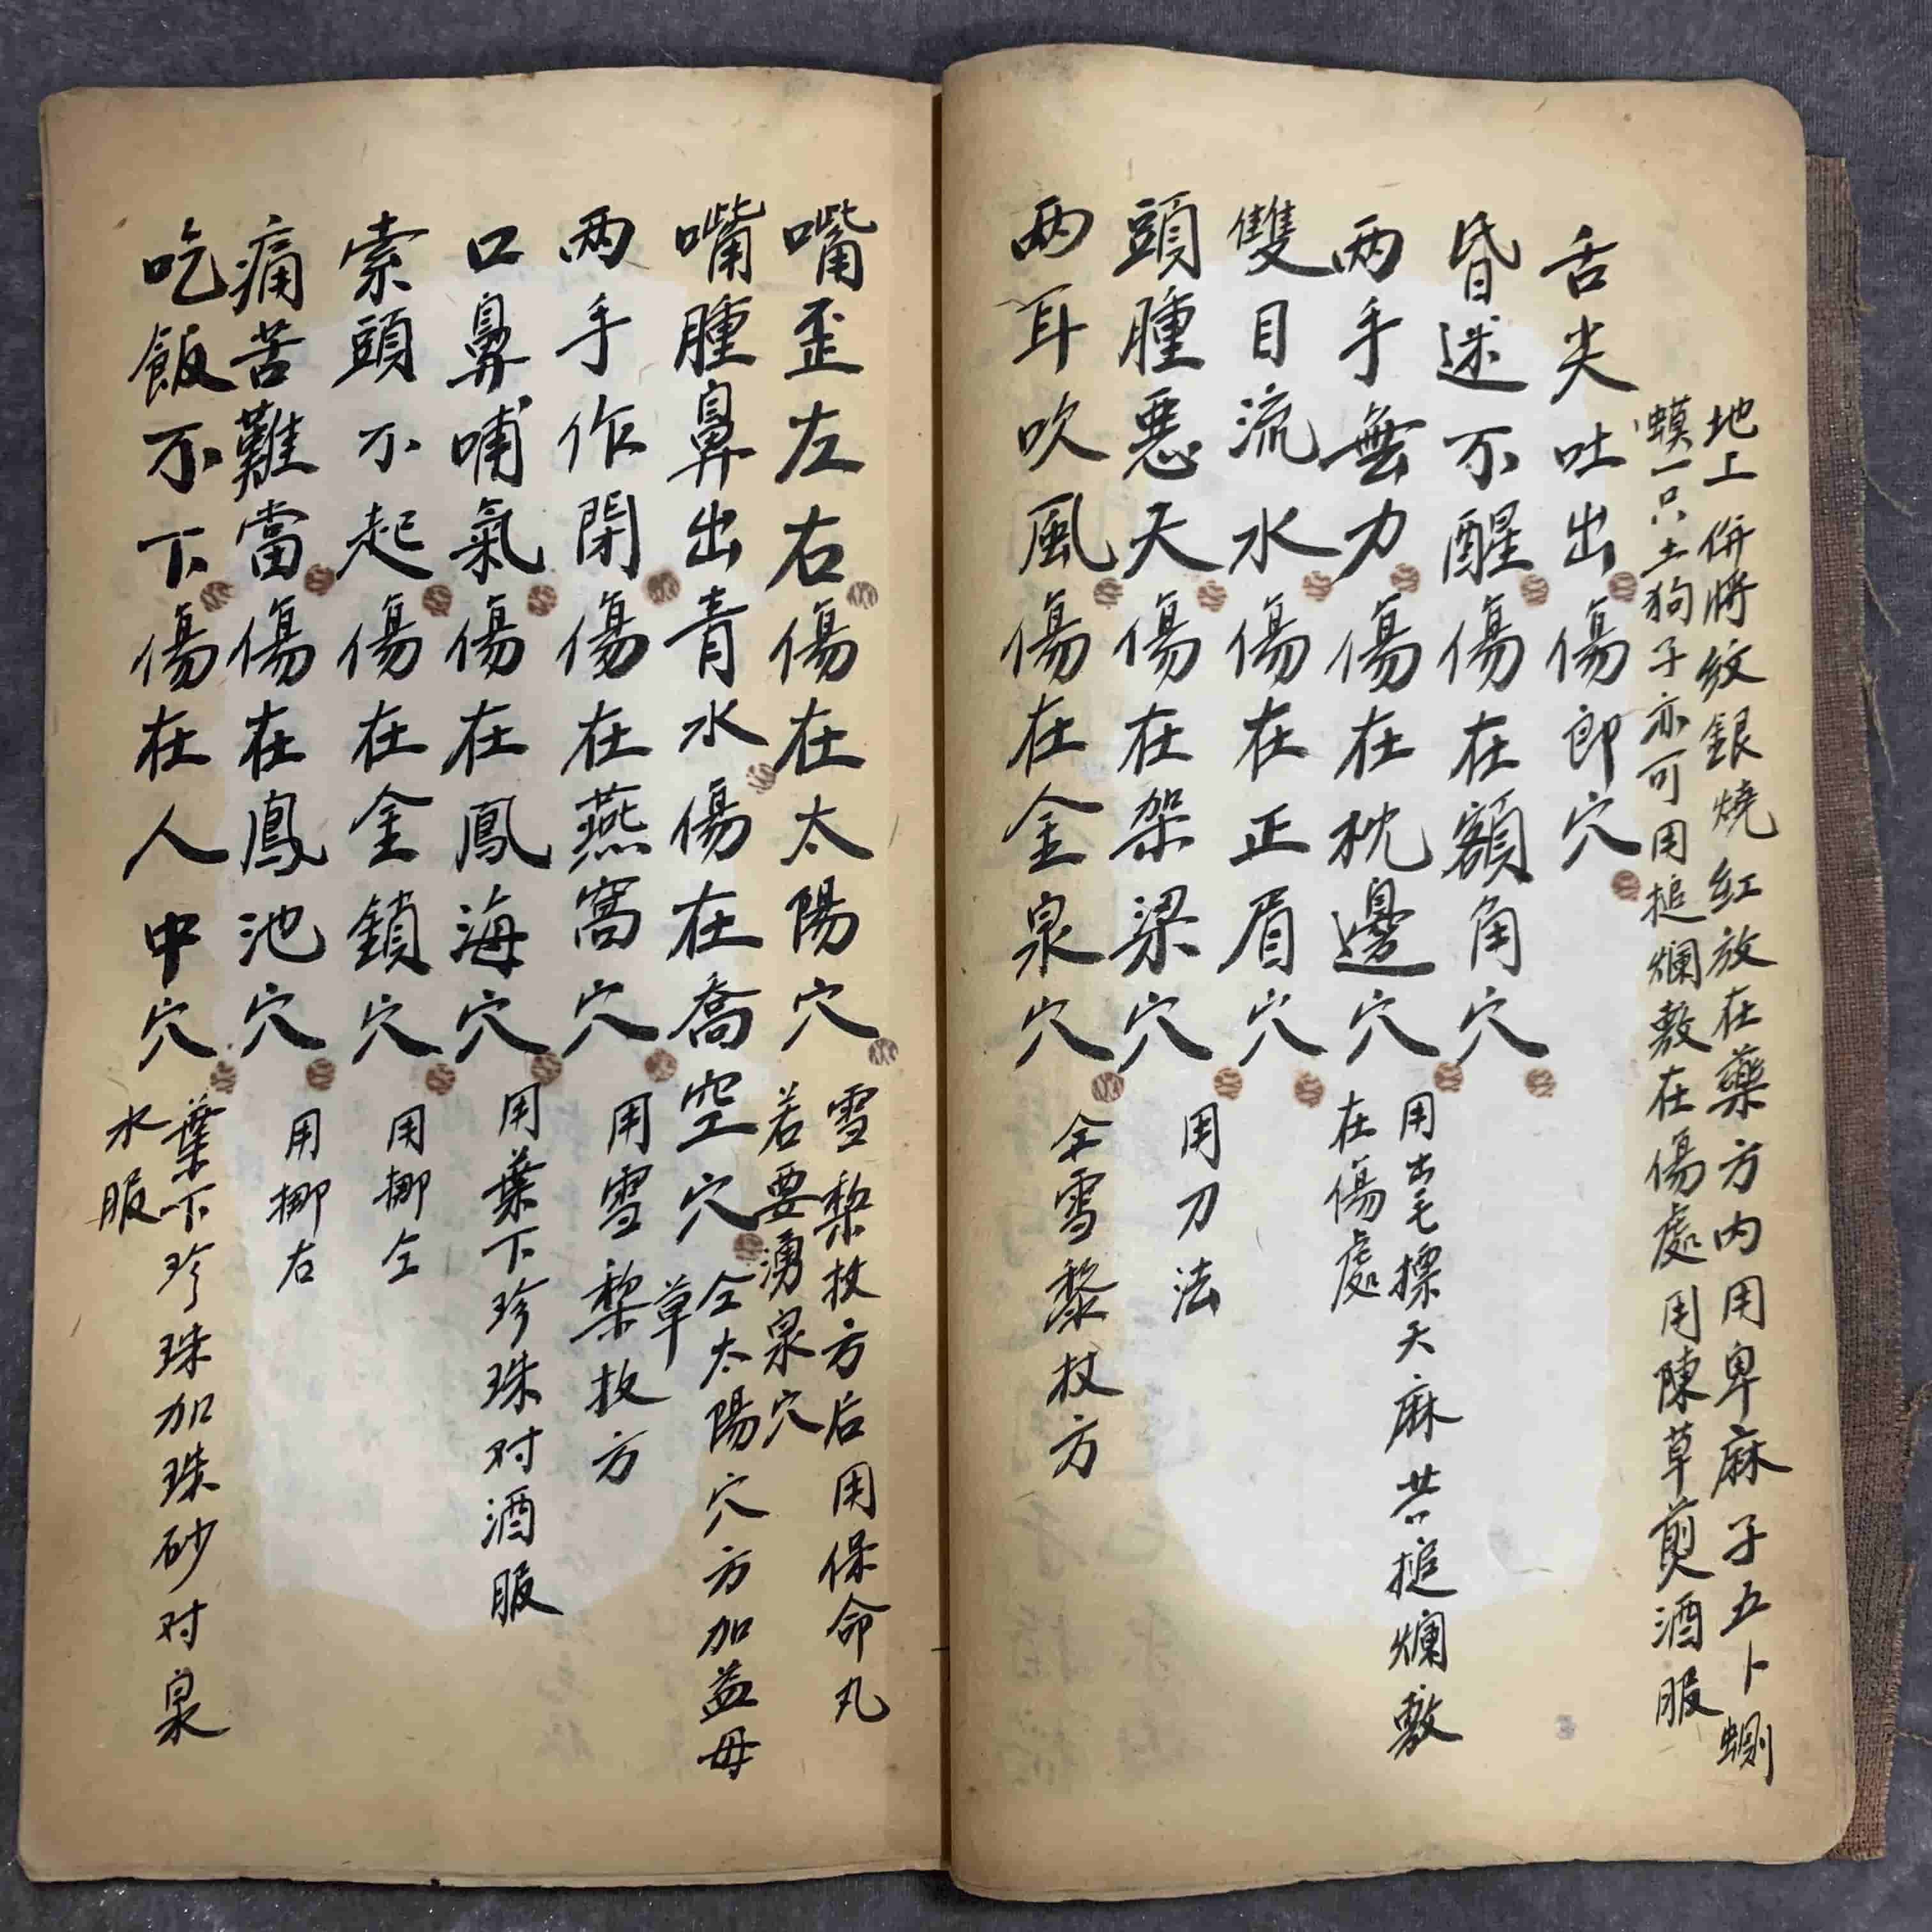 地上併將紋銀燒紅放在藥方内用卑麻子五卜蜊
蟆一只土狗子亦可用搥爛敷在傷處用陳草煎酒服
舌尖吐出傷郎穴
昏迷不醒傷在額角穴
兩手無力傷在枕邊穴
用出毛摽天麻共搥爛敷
在傷處
雙目流水傷在正眉穴
頭腫惡天傷在架梁穴
用刀法
兩耳吹風傷在金泉穴
仝雪黎杖方
嘴歪左右傷在太陽穴
雪黎杖方后用保命丸
若要湧泉穴
嘴腫鼻出青水傷在喬空穴
仝太陽穴方加益母
草
兩手作閉傷在燕窩穴
用雪黎杖方
口鼻哺氣傷在鳳海穴
用葉下珍珠对酒服
索頭不起傷在金鎖穴
用挪仝
痛苦難當傷在鳳池穴
用挪右
吃飯不下傷在人中穴
葉下珍珠加珠砂对泉
水服